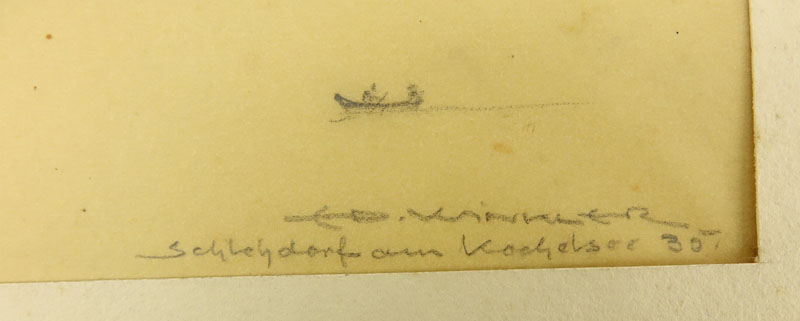 ED. WINKLER
Schlehdorf am Kochelsee 35.